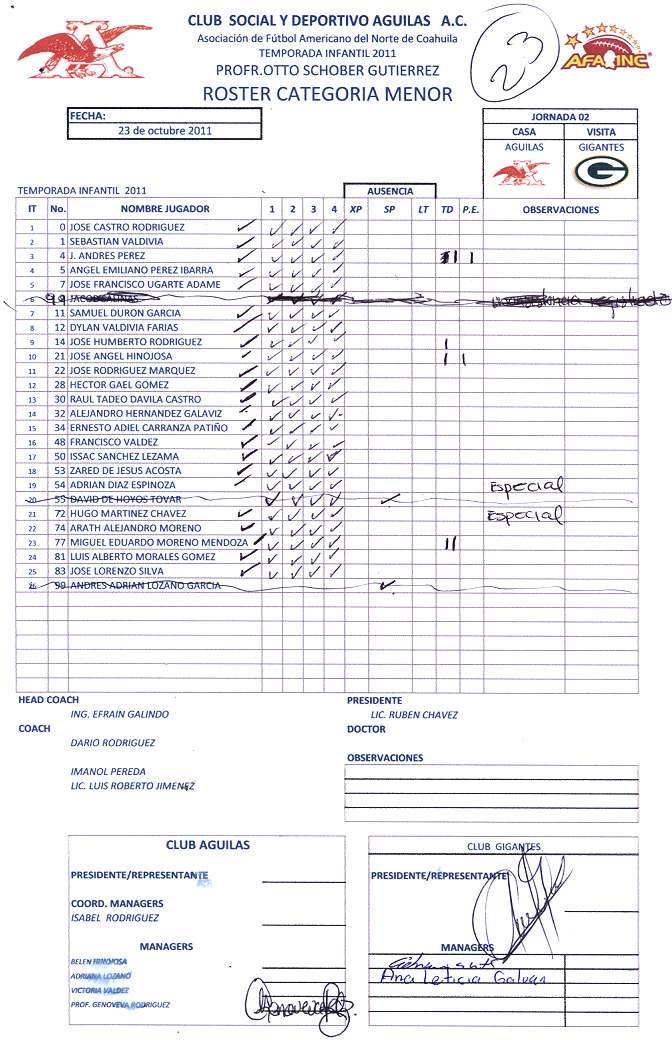 CLUB SOCIAL Y DEPORTIVO AGUILAS A.C.
Asociación de Fútbol Americano del Norte de Coahuila
TEMPORADA INFANTIL 2011
PROFR.OTTO SCHOBER GUTIERREZ
ROSTER CATEGORIA MENOR
23
AFA INC
FECHA:
23 de octubre 2011
JORNADA 02
CASA VISITA
AGUILAS GIGANTES
G
TEMPORADA INFANTIL 2011
AUSENCIA
IT No. NOMBRE JUGADOR 1 2 3 4 XP SP LT TD P.E. OBSERVACIONES
1 0 JOSE CASTRO RODRIGUEZ
2 1 SEBASTIAN VALDIVIA
3 4 J. ANDRES PEREZ
4 5 ANGEL EMILIANO PEREZ IBARRA
5 7 JOSE FRANCISCO UGARTE ADAME
6 JACOB SALINAS
7 11 SAMUEL DURON GARCIA
8 12 DYLAN VALDIVIA FARIAS
9 14 JOSE HUMBERTO RODRIGUEZ
10 21 JOSE ANGEL HINOJOSA
11 22 JOSE RODRIGUEZ MARQUEZ
12 28 HECTOR GAEL GOMEZ
13 30 RAUL TADEO DAVILA CASTRO
14 32 ALEJANDRO HERNANDEZ GALAVIZ
15 34 ERNESTO ADIEL CARRANZA PATIÑO
16 48 FRANCISCO VALDEZ
17 50 ISSAC SANCHEZ LEZAMA
18 53 ZARED DE JESUS ACOSTA
19 54 ADRIAN DIAZ ESPINOZA ESPECIAL
20 55 DAVID DE HOYOS TOVAR
21 72 HUGO MARTINEZ CHAVEZ ESPECIAL
22 74 ARATH ALEJANDRO MORENO
23 77 MIGUEL EDUARDO MORENO MENDOZA
24 81 LUIS ALBERTO MORALES GOMEZ
25 83 JOSE LORENZO SILVA
26 99 ANDRES ADRIAN LOZANO GARCIA
HEAD COACH PRESIDENTE
ING. EFRAIN GALINDO LIC. RUBEN CHAVEZ
COACH DOCTOR
DARIO RODRIGUEZ
OBSERVACIONES
IMANOL PEREDA
LIC. LUIS ROBERTO JIMENEZ
CLUB AGUILAS CLUB GIGANTES
PRESIDENTE/REPRESENTANTE PRESIDENTE/REPRESENTANTE
COORD. MANAGERS
ISABEL RODRIGUEZ
MANAGERS MANAGERS
BELEN HINOJOSA
ADRIANA LOZANO Ana Leticia Galvan
VICTORIA VALDEZ
PROF. GENOVEVA RODRIGUEZ